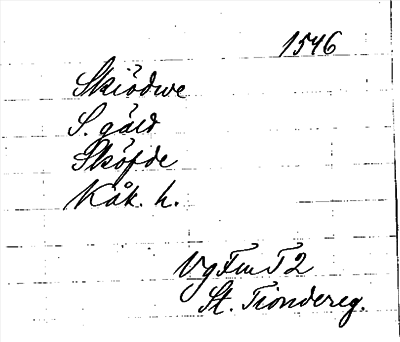 1546
Skiödwe
S. gärd
Sköfde
Kåk. h.
VgFmT2
St. Tiondereg.